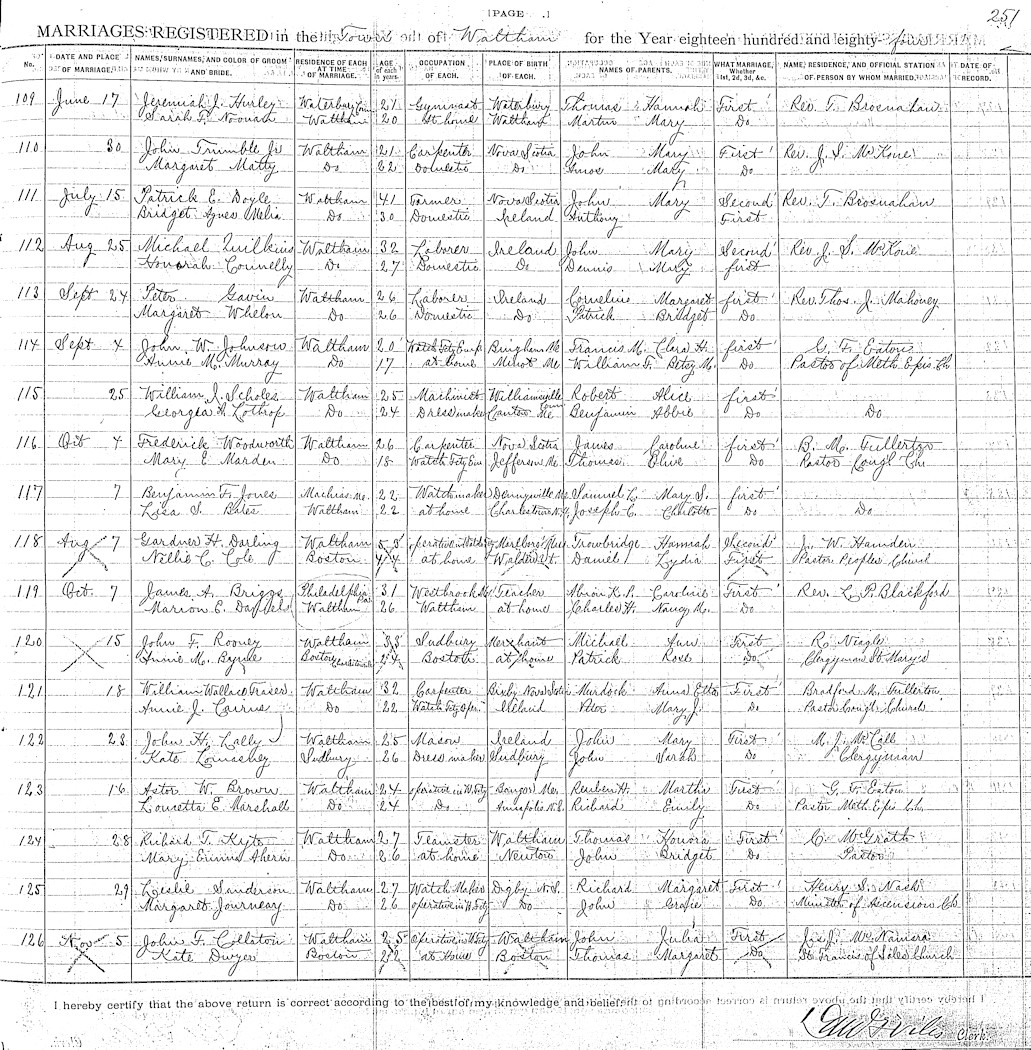 [PAGE .]
251
MARRIAGES REGISTERED in the Town of Waltham for the Year eighteen hundred and eighty-
No. DATE AND PLACE OF MARRIAGE. NAMES, SURNAMES, AND COLOR OF GROOM AND BRIDE. RESIDENCE OF EACH AT TIME OF MARRIAGE. AGE of each in years. OCCUPATION OF EACH. PLACE OF BIRTH OF EACH. NAMES OF PARENTS. WHAT MARRIAGE, Whether 1st, 2d, 3d, &c. NAME, RESIDENCE, AND OFFICIAL STATION OF PERSON BY WHOM MARRIED. DATE OF RECORD.
109 June 17 Jeremiah J. Hurley Waterbury Conn 21 Gymnast Waterbury Thomas Hannah First Rev. T. Brosnahan
Sarah F. Noonan Waltham 20 At home Waltham Martin Mary Do
110 30 John Trumble Jr Waltham 21 Carpenter Nova Scotia John Mary First Rev. J. S. McKone
Margaret Matty Do 22 Domestic Do Mary Do
111 July 15 Patrick E. Doyle Waltham 41 Farmer Nova Scotia John Mary Second Rev. T. Brosnahan
Bridget Agnes Melia Do 30 Domestic Ireland Anthony First
112 Aug 25 Michael Quilkins Waltham 32 Laborer Ireland John Mary Second Rev. J. S. McKone
Honorah Connelly Do 27 Domestic Do Dennis Mary first
113 Sept 24 Peter Gavin Waltham 26 Laborer Ireland Cornelius Margaret first Rev. Thos. J. Mahoney
Margaret Whelon Do 26 Domestic Do Patrick Bridget Do
114 Sept 4 John W. Johnson Waltham 20 Watch Fcty Emp Bingham Me Francis M. Clera H. first G. F. Eaton
Annie M. Murray Do 17 at home Minot Me William F. Betsy M. Do Pastor of Meth Epis Ch
115 25 William J. Scholes Waltham 25 Machinist Williamsville Conn Robert Alice first
Georgia A. Lothrop Do 24 Dressmaker Canton Me Benjamin Abbie Do Do
116 Oct 4 Frederick Woodworth Waltham 26 Carpenter Nova Scotia James Caroline first B. M. Fullerton
Mary E. Marden Do 18 Watch Fcty Em Jefferson Me Thomas Olive Do Pastor Cong'l Chu
117 7 Benjamin F. Jones Machias Me. 22 Watchmaker Dennysville Me. Samuel L. Mary S. first
Liza S. Bates Waltham 22 at home Charlestown N.H. Joseph C. Charlotte Do Do
118 Aug 7 Gardner H. Darling Waltham 53 Marlboro Mass Trowbridge Hannah Second J. W. Hamden
Nellie C. Cole Boston 44 at home Walden Vt. Daniel Lydia First Pastor Peoples Church
119 Oct. 7 James A. Briggs Philadelphia Pa. 31 Westbrook Me Teacher Abram K. P. Caroline First Rev. L. P. Blackford
Marion E. Daniels Waltham 26 Waltham at home Charles H. Nancy M. Do
120 15 John F. Rooney Waltham 33 Sudbury Merchant Michael Ann First R. Neagle
Annie M. Byrne Boston Charlestown 24 Boston at home Patrick Rose Do Clergyman St. Mary's
121 18 William Wallace Fraser Waltham 32 Carpenter Nova Scotia Murdock Anna Etta First Bradford M. Fullerton
Annie J. Cairns Do 22 Watch Fcty Oper. Ireland Peter Mary J. Do Pastor Cong'l Church
122 23 John H. Lally Waltham 25 Mason Ireland John Mary First M. J. McCall
Kate Sudbury 26 Dress maker Sudbury John Sarah Do Clergyman
123 16 Astor W. Brown Waltham 24 Operative in W. Fcty Bangor Me. Reuben H. Martha First G. F. Eaton
Louretta E. Marshall Do 24 Do Annapolis N.S. Richard Emily Do Pastor Meth Epis Ch.
124 28 Richard T. Kyte Waltham 27 Teamster Waltham Thomas Honora First C. McGrath
Mary Emma Ahern Do 26 at home Newton John Bridget Do Pastor
125 29 Leslie Sanderson Waltham 27 Watch Maker Digby N.S. Richard Margaret First Henry S. Nash
Margaret Journeay Do 26 operative in W. Fcty Do John Do Minister of Ascension Ch.
126 Nov 5 John F. Collston Waltham 25 Operative in W. Fcty Waltham John Julia First Jas. J. McNamara
Kate Dwyer Boston 22 at Home Boston Thomas Margaret Do St. Francis of Sales Church
I hereby certify that the above return is correct according to the best of my knowledge and belief.
Clerk.